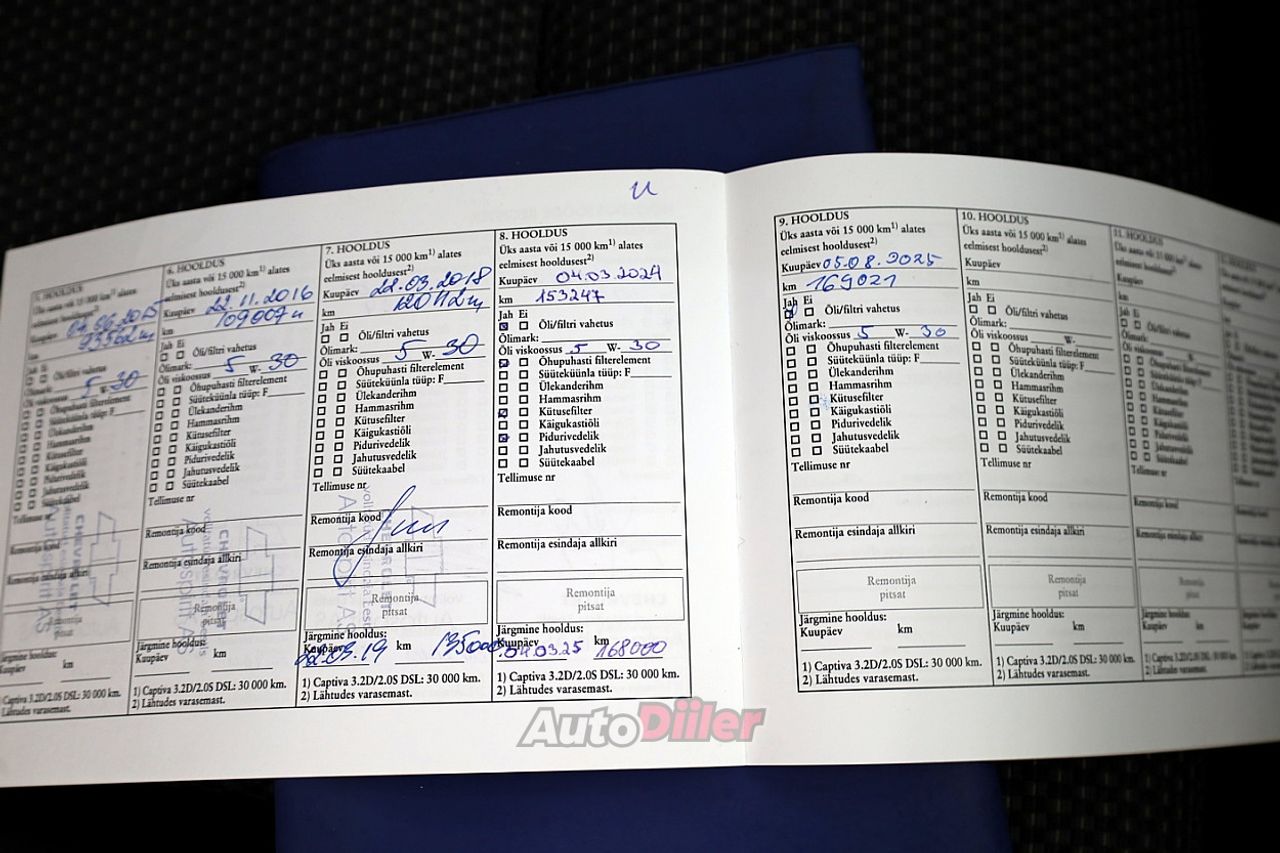 u
5. HOOLDUS
Üks aasta või 15 000 km¹⁾ alates
eelmisest hooldusest²⁾
Kuupäev 04.06.2015
km 93562 km
Jah Ei
Õli/filtri vahetus
Õlimark:
Õli viskoossus 5 W- 30
Õhupuhasti filterelement
Süüteküünla tüüp: F
Ülekanderihm
Hammasrihm
Kütusefilter
Käigukastiõli
Pidurivedelik
Jahutusvedelik
Süütekaabel
Tellimuse nr
Remontija kood
Remontija esindaja allkiri
CHEVROLET
Autospirit AS
Remontija
pitsat
Järgmine hooldus:
Kuupäev km
1) Captiva 3.2D/2.0S DSL: 30 000 km.
2) Lähtudes varasemast.
6. HOOLDUS
Üks aasta või 15 000 km¹⁾ alates
eelmisest hooldusest²⁾
Kuupäev 22.11.2016
km 109007 km
Jah Ei
Õli/filtri vahetus
Õlimark:
Õli viskoossus 5 W- 30
Õhupuhasti filterelement
Süüteküünla tüüp: F
Ülekanderihm
Hammasrihm
Kütusefilter
Käigukastiõli
Pidurivedelik
Jahutusvedelik
Süütekaabel
Tellimuse nr
Remontija kood
Remontija esindaja allkiri
CHEVROLET
Autospirit AS
Remontija
pitsat
Järgmine hooldus:
Kuupäev km
1) Captiva 3.2D/2.0S DSL: 30 000 km.
2) Lähtudes varasemast.
7. HOOLDUS
Üks aasta või 15 000 km¹⁾ alates
eelmisest hooldusest²⁾
Kuupäev 22.03.2018
km 120112 km
Jah Ei
Õli/filtri vahetus
Õlimark:
Õli viskoossus 5 W- 30
Õhupuhasti filterelement
Süüteküünla tüüp: F
Ülekanderihm
Hammasrihm
Kütusefilter
Käigukastiõli
Pidurivedelik
Jahutusvedelik
Süütekaabel
Tellimuse nr
Remontija kood
Remontija esindaja allkiri
Remontija
pitsat
Järgmine hooldus:
Kuupäev km
22.03.19 135000
1) Captiva 3.2D/2.0S DSL: 30 000 km.
2) Lähtudes varasemast.
8. HOOLDUS
Üks aasta või 15 000 km¹⁾ alates
eelmisest hooldusest²⁾
Kuupäev 04.03.2024
km 153247
Jah Ei
Õli/filtri vahetus
Õlimark:
Õli viskoossus 5 W- 30
Õhupuhasti filterelement
Süüteküünla tüüp: F
Ülekanderihm
Hammasrihm
Kütusefilter
Käigukastiõli
Pidurivedelik
Jahutusvedelik
Süütekaabel
Tellimuse nr
Remontija kood
Remontija esindaja allkiri
Remontija
pitsat
Järgmine hooldus:
Kuupäev km
04.03.25 168000
1) Captiva 3.2D/2.0S DSL: 30 000 km.
2) Lähtudes varasemast.
9. HOOLDUS
Üks aasta või 15 000 km¹⁾ alates
eelmisest hooldusest²⁾
Kuupäev 05.08.2025
km 169021
Jah Ei
Õli/filtri vahetus
Õlimark:
Õli viskoossus 5 W- 30
Õhupuhasti filterelement
Süüteküünla tüüp: F
Ülekanderihm
Hammasrihm
Kütusefilter
Käigukastiõli
Pidurivedelik
Jahutusvedelik
Süütekaabel
Tellimuse nr
Remontija kood
Remontija esindaja allkiri
Remontija
pitsat
Järgmine hooldus:
Kuupäev km
1) Captiva 3.2D/2.0S DSL: 30 000 km.
2) Lähtudes varasemast.
10. HOOLDUS
Üks aasta või 15 000 km¹⁾ alates
eelmisest hooldusest²⁾
Kuupäev
km
Jah Ei
Õli/filtri vahetus
Õlimark:
Õli viskoossus W-
Õhupuhasti filterelement
Süüteküünla tüüp: F
Ülekanderihm
Hammasrihm
Kütusefilter
Käigukastiõli
Pidurivedelik
Jahutusvedelik
Süütekaabel
Tellimuse nr
Remontija kood
Remontija esindaja allkiri
Remontija
pitsat
Järgmine hooldus:
Kuupäev km
1) Captiva 3.2D/2.0S DSL: 30 000 km.
2) Lähtudes varasemast.
11. HOOLDUS
Üks aasta või 15 000 km¹⁾ alates
eelmisest hooldusest²⁾
Kuupäev
km
Jah Ei
Õli/filtri vahetus
Õlimark:
Õli viskoossus W-
Õhupuhasti filterelement
Süüteküünla tüüp: F
Ülekanderihm
Hammasrihm
Kütusefilter
Käigukastiõli
Pidurivedelik
Jahutusvedelik
Süütekaabel
Tellimuse nr
Remontija kood
Remontija esindaja allkiri
Remontija
pitsat
Järgmine hooldus:
Kuupäev km
1) Captiva 3.2D/2.0S DSL: 30 000 km.
2) Lähtudes varasemast.
AutoDiiler